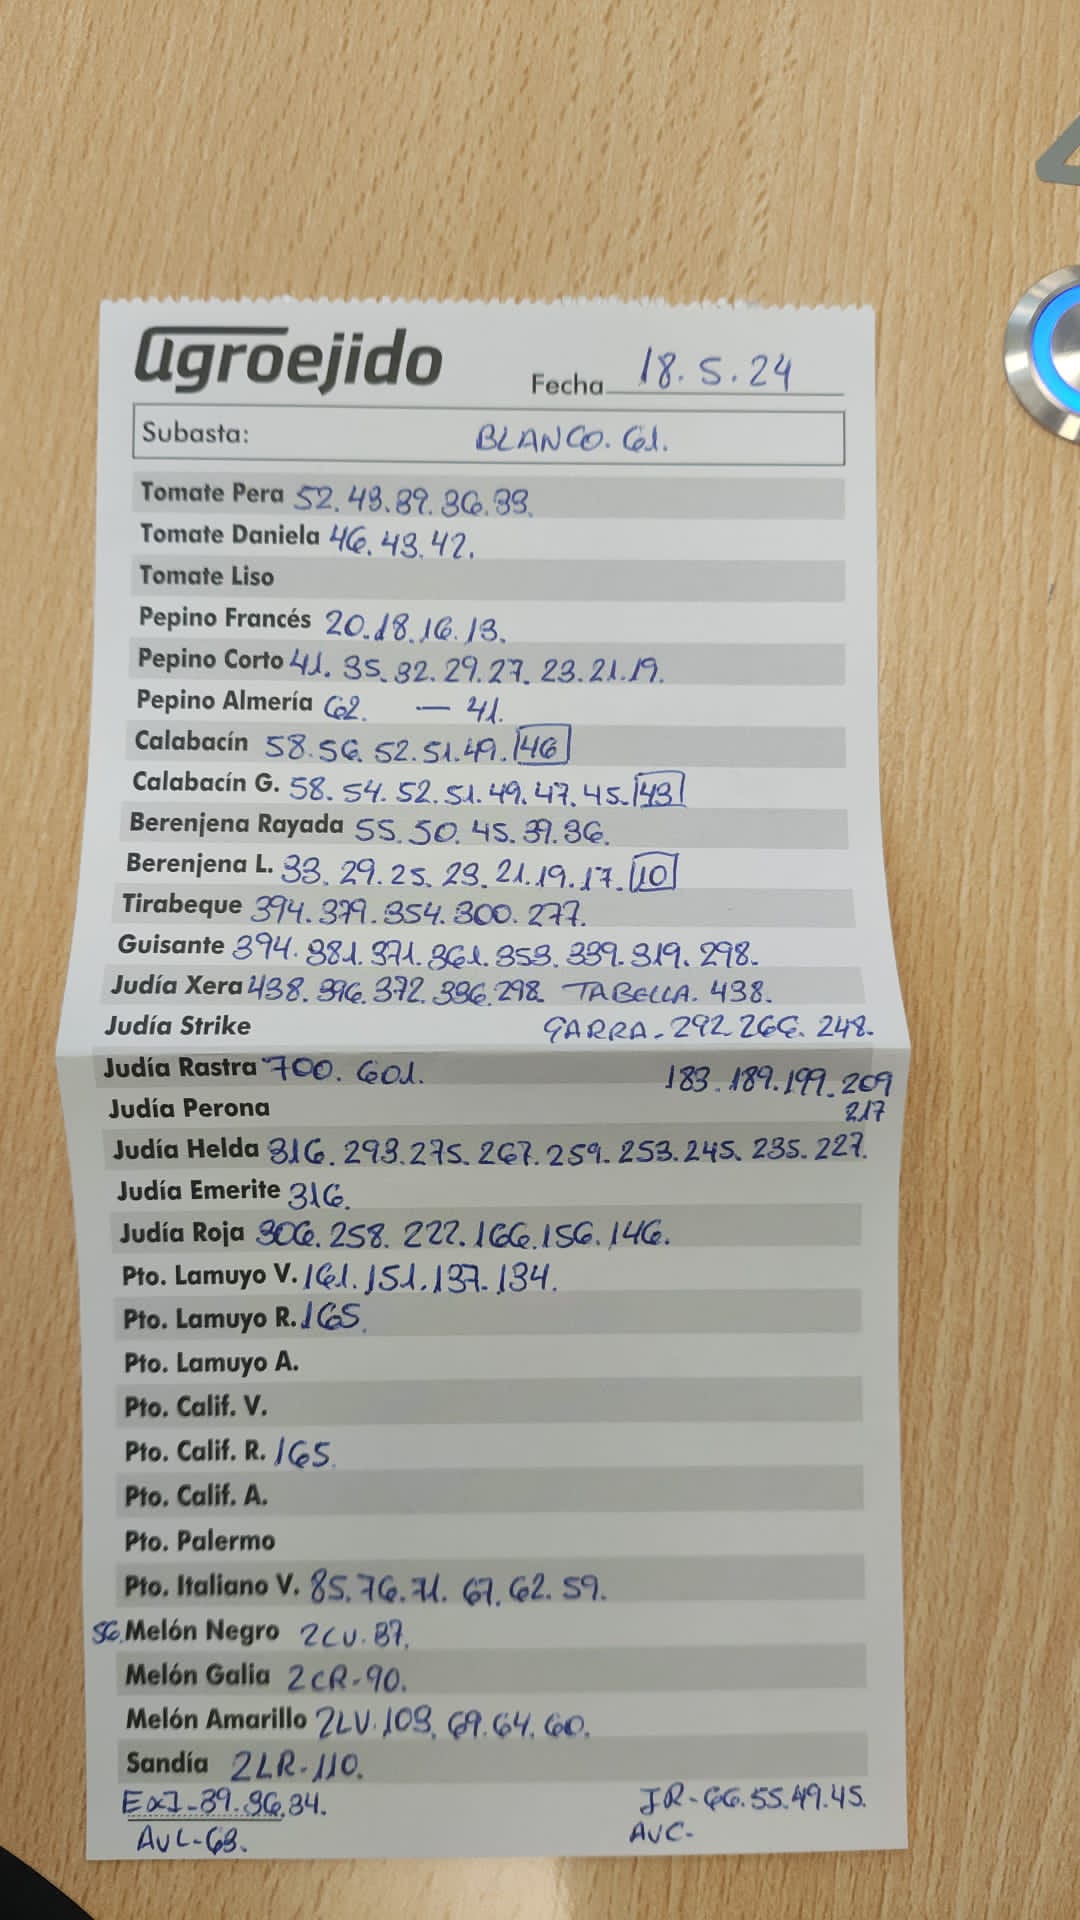 agroejido
Fecha 18.5.24
Subasta: BLANCO. 61.
Tomate Pera 52.43.39.36.33.
Tomate Daniela 46.43.42.
Tomate Liso
Pepino Francés 20.18.16.13.
Pepino Corto 41.35.32.29.27.23.21.19.
Pepino Almería 62. — 41.
Calabacín 58.56.52.51.49.46
Calabacín G. 58.54.52.51.49.47.45.43
Berenjena Rayada 55.50.45.39.36.
Berenjena L. 33.29.25.23.21.19.17.10
Tirabeque 394.379.354.300.277.
Guisante 394.381.371.361.353.339.319.298.
Judía Xera 438.396.372.336.298. TABELLA. 438.
Judía Strike GARRA-292.266.248.
Judía Rastra 700.601. 183.189.199.209
Judía Perona 217
Judía Helda 316.293.275.267.259.253.245.235.227.
Judía Emerite 316.
Judía Roja 306.258.222.166.156.146.
Pto. Lamuyo V. 161.151.137.134.
Pto. Lamuyo R. 165.
Pto. Lamuyo A.
Pto. Calif. V.
Pto. Calif. R. 165.
Pto. Calif. A.
Pto. Palermo
Pto. Italiano V. 85.76.71.67.62.59.
56. Melón Negro 2CV.87.
Melón Galia 2CR-90.
Melón Amarillo 2LV.103.69.64.60.
Sandía 2LR-110.
-39.36.34. JR-66.55.49.45.
AVL-63. AVC-